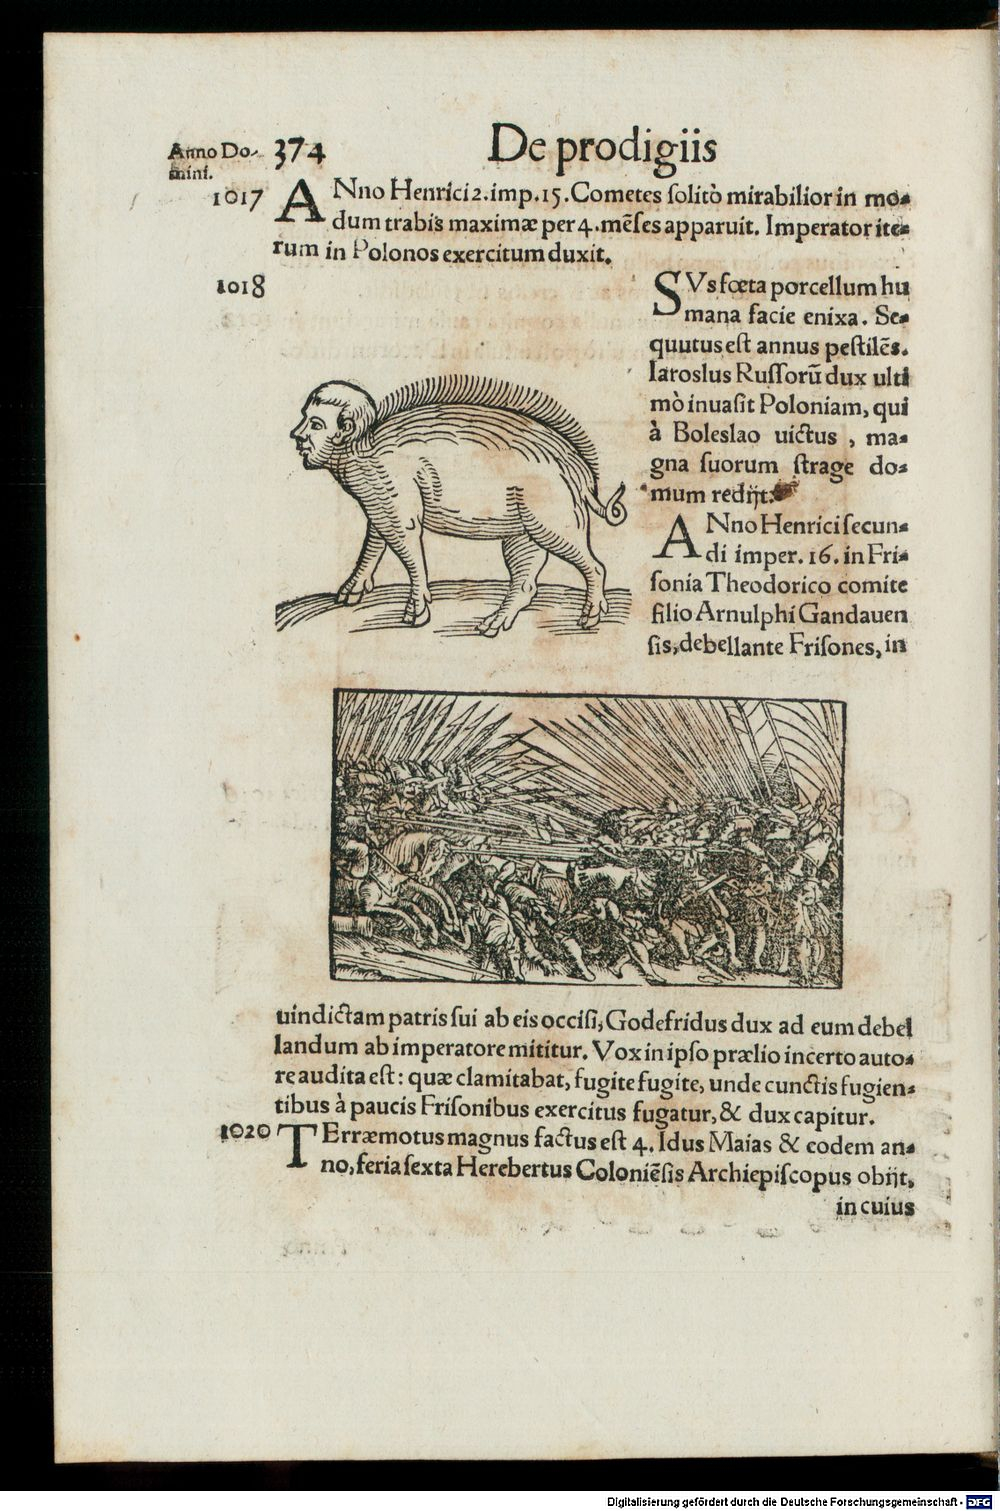 Anno Do-
mini.
374
De prodigiis
1017
ANno Henrici 2. imp. 15. Cometes ſolitò mirabilior in mo-
dum trabis maximæ per 4. mẽſes apparuit. Imperator ite-
rum in Polonos exercitum duxit.
1018
SVs fœta porcellum hu
mana facie enixa. Se-
quutus eſt annus peſtilẽs.
Iaroslus Ruſſorũ dux ulti
mò inuaſit Poloniam, qui
à Boleslao uictus, ma-
gna ſuorum ſtrage do-
mum redijt.
ANno Henrici ſecun-
di imper. 16. in Fri-
ſonia Theodorico comite
filio Arnulphi Gandauen
ſis, debellante Friſones, in
uindictam patris ſui ab eis occiſi, Godefridus dux ad eum debel
landum ab imperatore mititur. Vox in ipſo prælio incerto auto-
re audita eſt: quæ clamitabat, fugite fugite, unde cunctis fugien-
tibus à paucis Friſonibus exercitus fugatur, & dux capitur.
1020
TErræmotus magnus factus eſt 4. Idus Maias & eodem an-
no, feria ſexta Herebertus Coloniẽſis Archiepiſcopus obijt,
in cuius
Digitalisierung gefördert durch die Deutsche Forschungsgemeinschaft - DFG